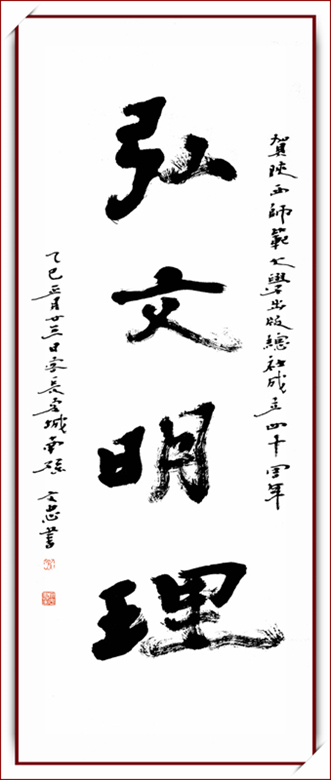 賀陝西師範大學出版總社成立四十周年
弘文明理
乙巳正月廿三日客長安城南孫文忠書